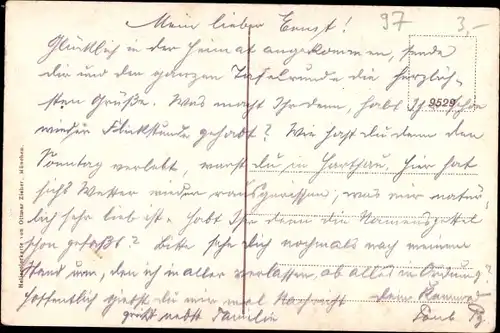 Mein lieber Ernst!
97
3.-
Glücklich in der Heimat angekommen, sende
dir und der ganzen Tafelrunde die herzlich-
sten Grüße. Was macht Ihr denn, habt Ihr schon
9529
wieder Flickstunde gehabt? Wie hast du denn den
Sonntag verlebt, warst du in Harthau. Hier hat
sichs Wetter wieder rausgerissen, was mir natür-
lich sehr lieb ist. Habt Ihr denn die Namenzettel
schon gefaßt? Bitte sehe dich nochmals nach meinem
Stand um, den ich in aller verlassen, ob alles in Ordnung?
Hoffentlich giebst du mir mal Nachricht dein Kamerad
grüßt nebst Familie
Heliogravüre von Ottmar Zieher, München.